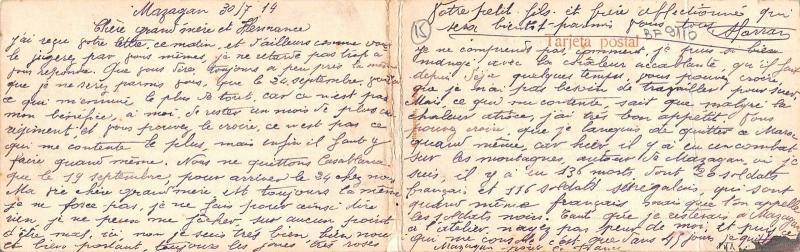 Mazagan 30/7 14
Chère grand'mère et Hermance
J'ai reçu votre lettre, ce matin, et d'ailleurs comme vous
le jugerez par vous mêmes, je ne tarde pas trop à
vous répondre. Que vous dire, toujours à peu près la même
que je ne serai parmis vous, que le 24 septembre, voilà
ce qui m'ennuie le plus de tout, car ce n'est pas
mon bénéfice, à moi, de rester un mois de plus au
régiment, et vous pouvez le croire, ce n'est pas ce
qui me contente le plus, mais enfin il faut y
faire quand même. Nous ne quittons Casablanca
que le 19 septembre, pour arriver le 24 chez nous.
Ma vie chère grand'mère est toujours la même
je ne force pas, je ne fais pour ainsi dire
rien, je ne peux me fâcher sur aucun point
d'être mal, ici non je suis très bien, bien nourri
et bien portant, toujours les joues très roses
Votre petit fils et frère affectionné qui
sera bientôt parmis vous tous
Tarjeta postal
BF 9110
15
Je ne comprends pas comment, je puis si bien
manger, avec la chaleur accablante, qu'il fait
depuis déjà quelques temps, vous pouvez croire,
que je n'ai pas besoin de travailler pour suer.
Mais ce que me contente, sait que malgré la
chaleur atroce, j'ai très bon appétit. Vous
pouvez croire que je languis de quitter ce Maroc
quand même, car hier, il y a eu un combat
sur les montagnes, autour de Mazagan, où je
suis, il y a eu 136 morts dont 20 soldats
français et 116 soldats sénégalais, qui sont
quand même français mais que l'on appelle
les soldats noirs. Tant que je resterais à Mazagan
à l'atelier, n'ayez pas peur de moi, et puis
qui me console c'est que dans 51 jours je quitte